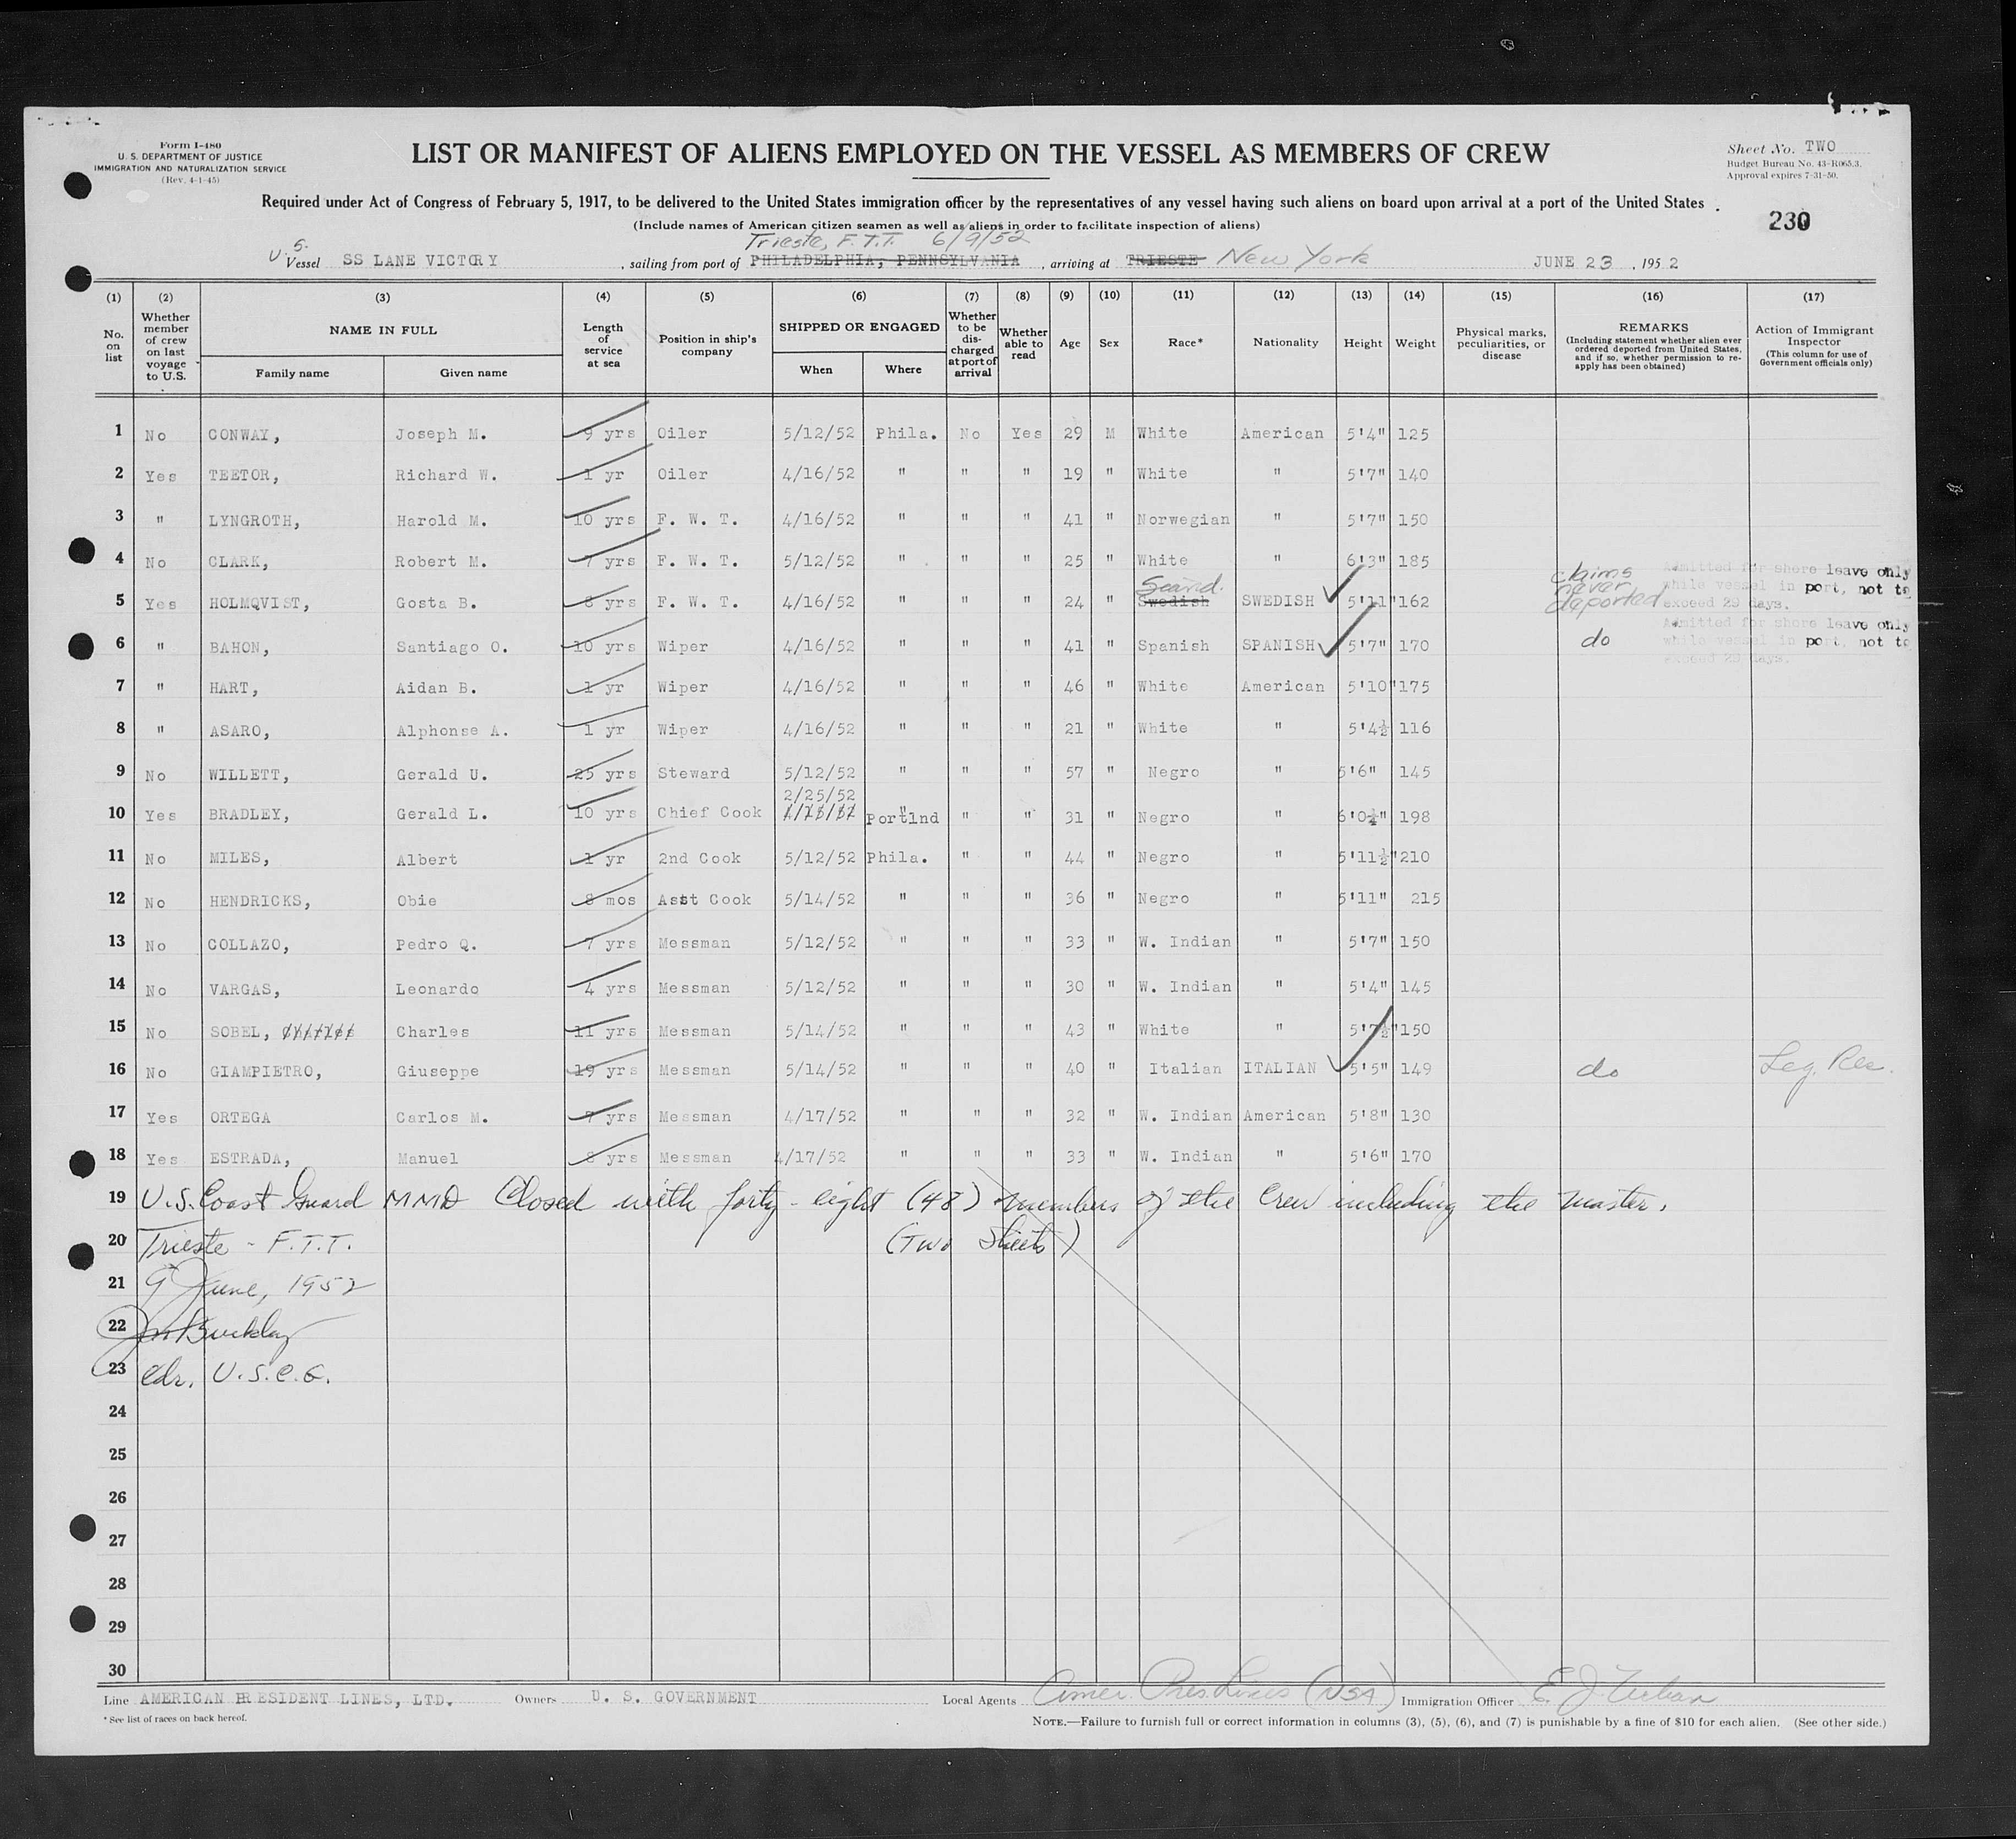 Form I-480
U. S. DEPARTMENT OF JUSTICE
IMMIGRATION AND NATURALIZATION SERVICE
(Rev. 4-1-45)
LIST OR MANIFEST OF ALIENS EMPLOYED ON THE VESSEL AS MEMBERS OF CREW
Sheet No. TWO
Budget Bureau No. 43-R065.3.
Approval expires 7-31-50.
Required under Act of Congress of February 5, 1917, to be delivered to the United States immigration officer by the representatives of any vessel having such aliens on board upon arrival at a port of the United States
230
(Include names of American citizen seamen as well as aliens in order to facilitate inspection of aliens)
Trieste, F.T.T. 6/9/52
U.S. Vessel SS LANE VICTORY, sailing from port of PHILADELPHIA, PENNSYLVANIA, arriving at TRIESTE New York JUNE 23, 1952
(1) (2) (3) (4) (5) (6) (7) (8) (9) (10) (11) (12) (13) (14) (15) (16) (17)
No. on list
Whether member of crew on last voyage to U.S.
NAME IN FULL
Family name
Given name
Length of service at sea
Position in ship's company
SHIPPED OR ENGAGED
When
Where
Whether to be discharged at port of arrival
Whether able to read
Age
Sex
Race*
Nationality
Height
Weight
Physical marks, peculiarities, or disease
REMARKS
(Including statement whether alien ever ordered deported from United States, and if so, whether permission to reapply has been obtained)
Action of Immigrant Inspector
(This column for use of Government officials only)
1 No CONWAY, Joseph M. 9 yrs Oiler 5/12/52 Phila. No Yes 29 M White American 5'4" 125
2 Yes TEETOR, Richard W. 1 yr Oiler 4/16/52 " " " 19 " White " 5'7" 140
3 " LYNGROTH, Harold M. 10 yrs F. W. T. 4/16/52 " " " 41 " Norwegian " 5'7" 150
4 No CLARK, Robert M. 7 yrs F. W. T. 5/12/52 " " " 25 " White " 6'3" 185
5 Yes HOLMQVIST, Gosta B. 8 yrs F. W. T. 4/16/52 " " " 24 " Swedish Scand. SWEDISH 5'11" 162 claims never deported Admitted for shore leave only while vessel in port, not to exceed 29 days.
6 " BAHON, Santiago O. 10 yrs Wiper 4/16/52 " " " 41 " Spanish SPANISH 5'7" 170 do Admitted for shore leave only while vessel in port, not to exceed 29 days.
7 " HART, Aidan B. 1 yr Wiper 4/16/52 " " " 46 " White American 5'10" 175
8 " ASARO, Alphonse A. 1 yr Wiper 4/16/52 " " " 21 " White " 5'4½ 116
9 No WILLETT, Gerald U. 25 yrs Steward 5/12/52 " " " 57 " Negro " 5'6" 145
10 Yes BRADLEY, Gerald L. 10 yrs Chief Cook 2/25/52 Portlnd " " 31 " Negro " 6'0½" 198
11 No MILES, Albert 1 yr 2nd Cook 5/12/52 Phila. " " 44 " Negro " 5'11½" 210
12 No HENDRICKS, Obie 8 mos Asst Cook 5/14/52 " " " 36 " Negro " 5'11" 215
13 No COLLAZO, Pedro Q. 7 yrs Messman 5/12/52 " " " 33 " W. Indian " 5'7" 150
14 No VARGAS, Leonardo 4 yrs Messman 5/12/52 " " " 30 " W. Indian " 5'4" 145
15 No SOBEL, Charles 11 yrs Messman 5/14/52 " " " 43 " White " 5'7½" 150
16 No GIAMPIETRO, Giuseppe 19 yrs Messman 5/14/52 " " " 40 " Italian ITALIAN 5'5" 149 do Leg. Res.
17 Yes ORTEGA Carlos M. 7 yrs Messman 4/17/52 " " " 32 " W. Indian American 5'8" 130
18 Yes ESTRADA, Manuel 8 yrs Messman 4/17/52 " " " 33 " W. Indian " 5'6" 170
19 U.S. Coast Guard MMD Closed with forty-eight (48) members of the Crew including the Master.
20 Trieste - F.T.T. (Two Sheets)
21 9 June, 1952
22 Buckley
23 Cdr. U.S.C.G.
24
25
26
27
28
29
30
Line AMERICAN PRESIDENT LINES, LTD. Owners U. S. GOVERNMENT Local Agents Amer. Pres. Lines (NSA) Immigration Officer E. J.
* See list of races on back hereof.
NOTE.—Failure to furnish full or correct information in columns (3), (5), (6), and (7) is punishable by a fine of $10 for each alien. (See other side.)